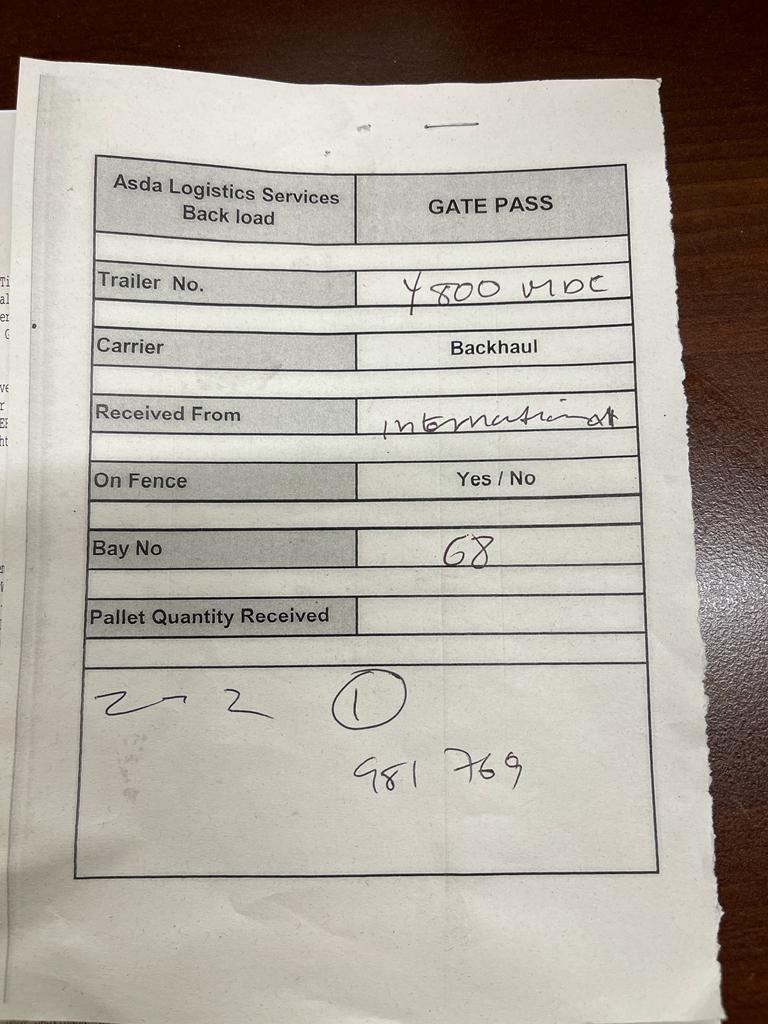 Asda Logistics Services
Back load
GATE PASS
Trailer No. Y800 MDC
Carrier Backhaul
Received From International
On Fence Yes / No
Bay No 68
Pallet Quantity Received
2-2 1
981 769